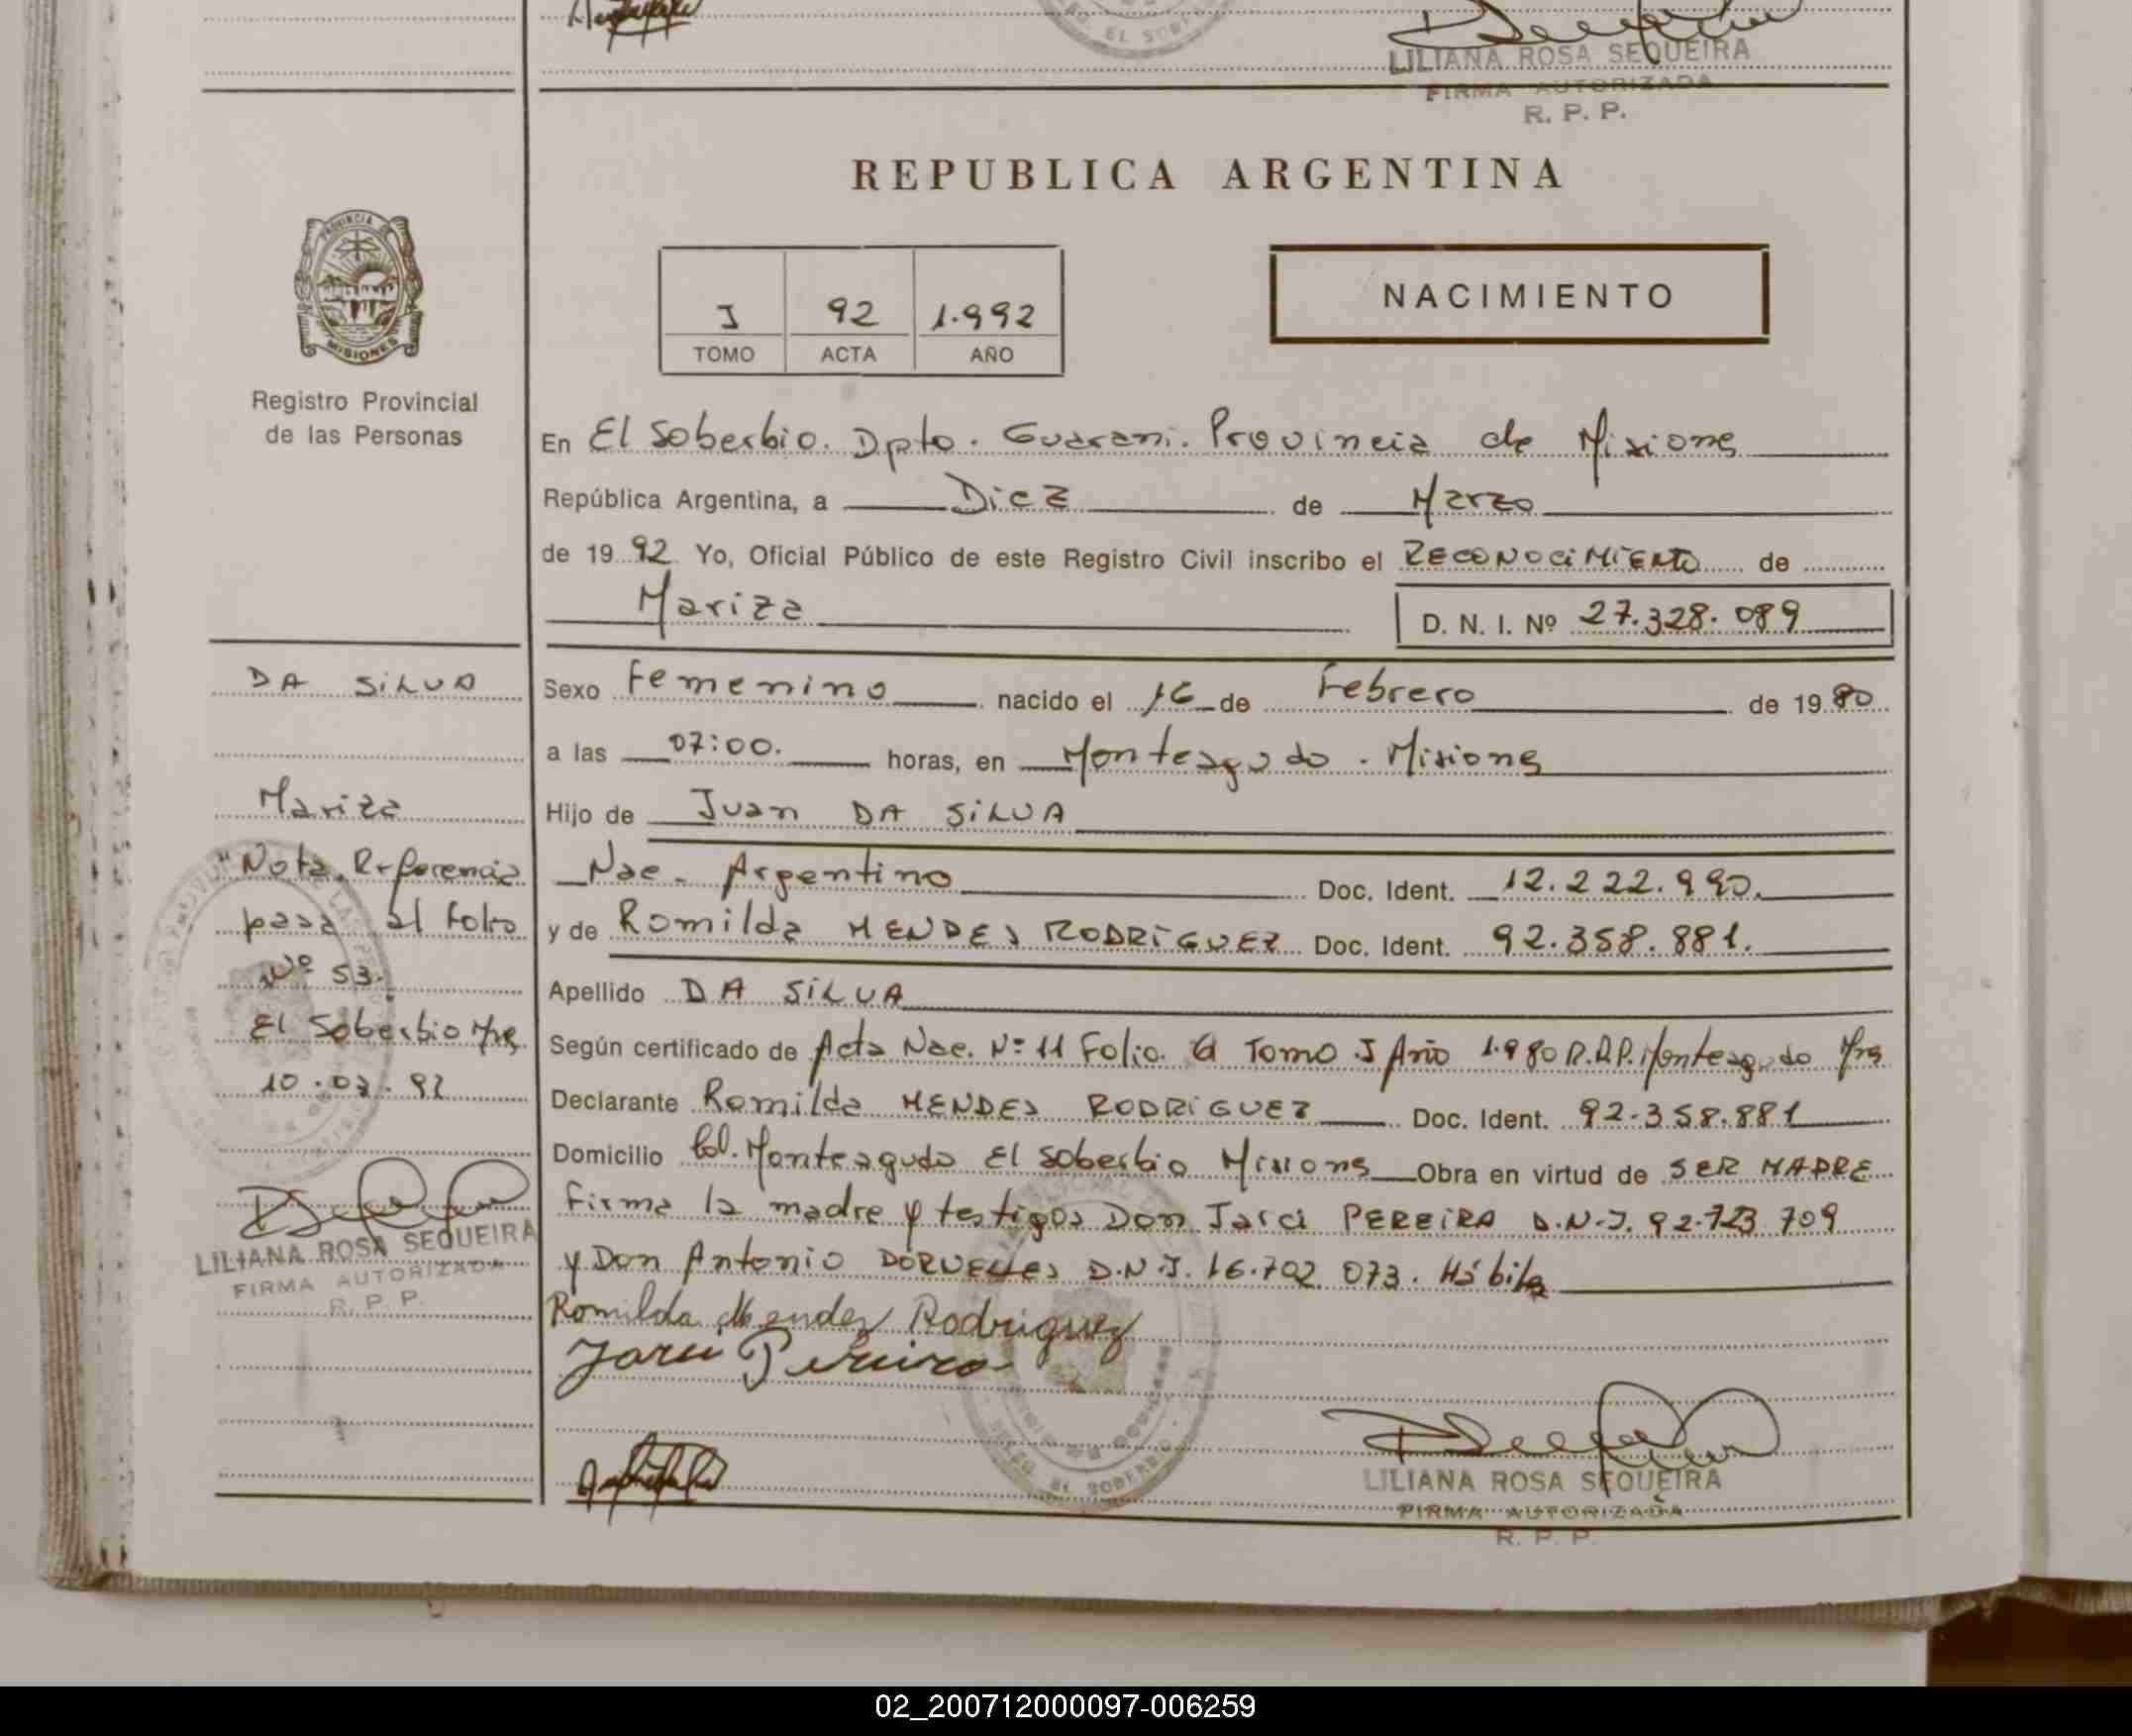 LILIANA ROSA SEQUEIRA
FIRMA AUTORIZADA
R. P. P.
REPUBLICA ARGENTINA
PROVINCIA DE
MISIONES
Registro Provincial
de las Personas
I 92 1.992
TOMO ACTA AÑO
NACIMIENTO
En El Soberbio. Dpto. Guarani. Provincia de Misiones
República Argentina, a Diez de Marzo
de 19 92 Yo, Oficial Público de este Registro Civil inscribo el RECONOCIMIENTO de
Mariza
D. N. I. Nº 27.328.089
DA SILVA
Mariza
"Nota Referencia
pasa al Folio
Nº 53.
El Soberbio Mnes
10.03.92
LILIANA ROSA SEQUEIRA
FIRMA AUTORIZADA
R. P. P.
Sexo Femenino nacido el 16 de Febrero de 19 80
a las 07:00. horas, en Monteagudo - Misiones
Hijo de Juan DA SILVA
Nac. Argentino Doc. Ident. 12.222.990.
y de Romilda MENDES RODRIGUEZ Doc. Ident. 92.358.881.
Apellido DA SILVA
Según certificado de Acta Nac. Nº 11 Folio. 6 Tomo I Año 1.980 R.P.P. Monteagudo Mnes
Declarante Romilda MENDES RODRIGUEZ Doc. Ident. 92.358.881
Domicilio Col. Monteagudo El Soberbio Misiones Obra en virtud de SER MADRE
Firma la madre y testigos Don Jarci PEREIRA D.N.I. 92.723.709
y Don Antonio D.N.I. 16.702.073. Hábiles
Romilda Mendez Rodriguez
Jarci Pereira
LILIANA ROSA SEQUEIRA
FIRMA AUTORIZADA
R. P. P.
02_200712000097-006259